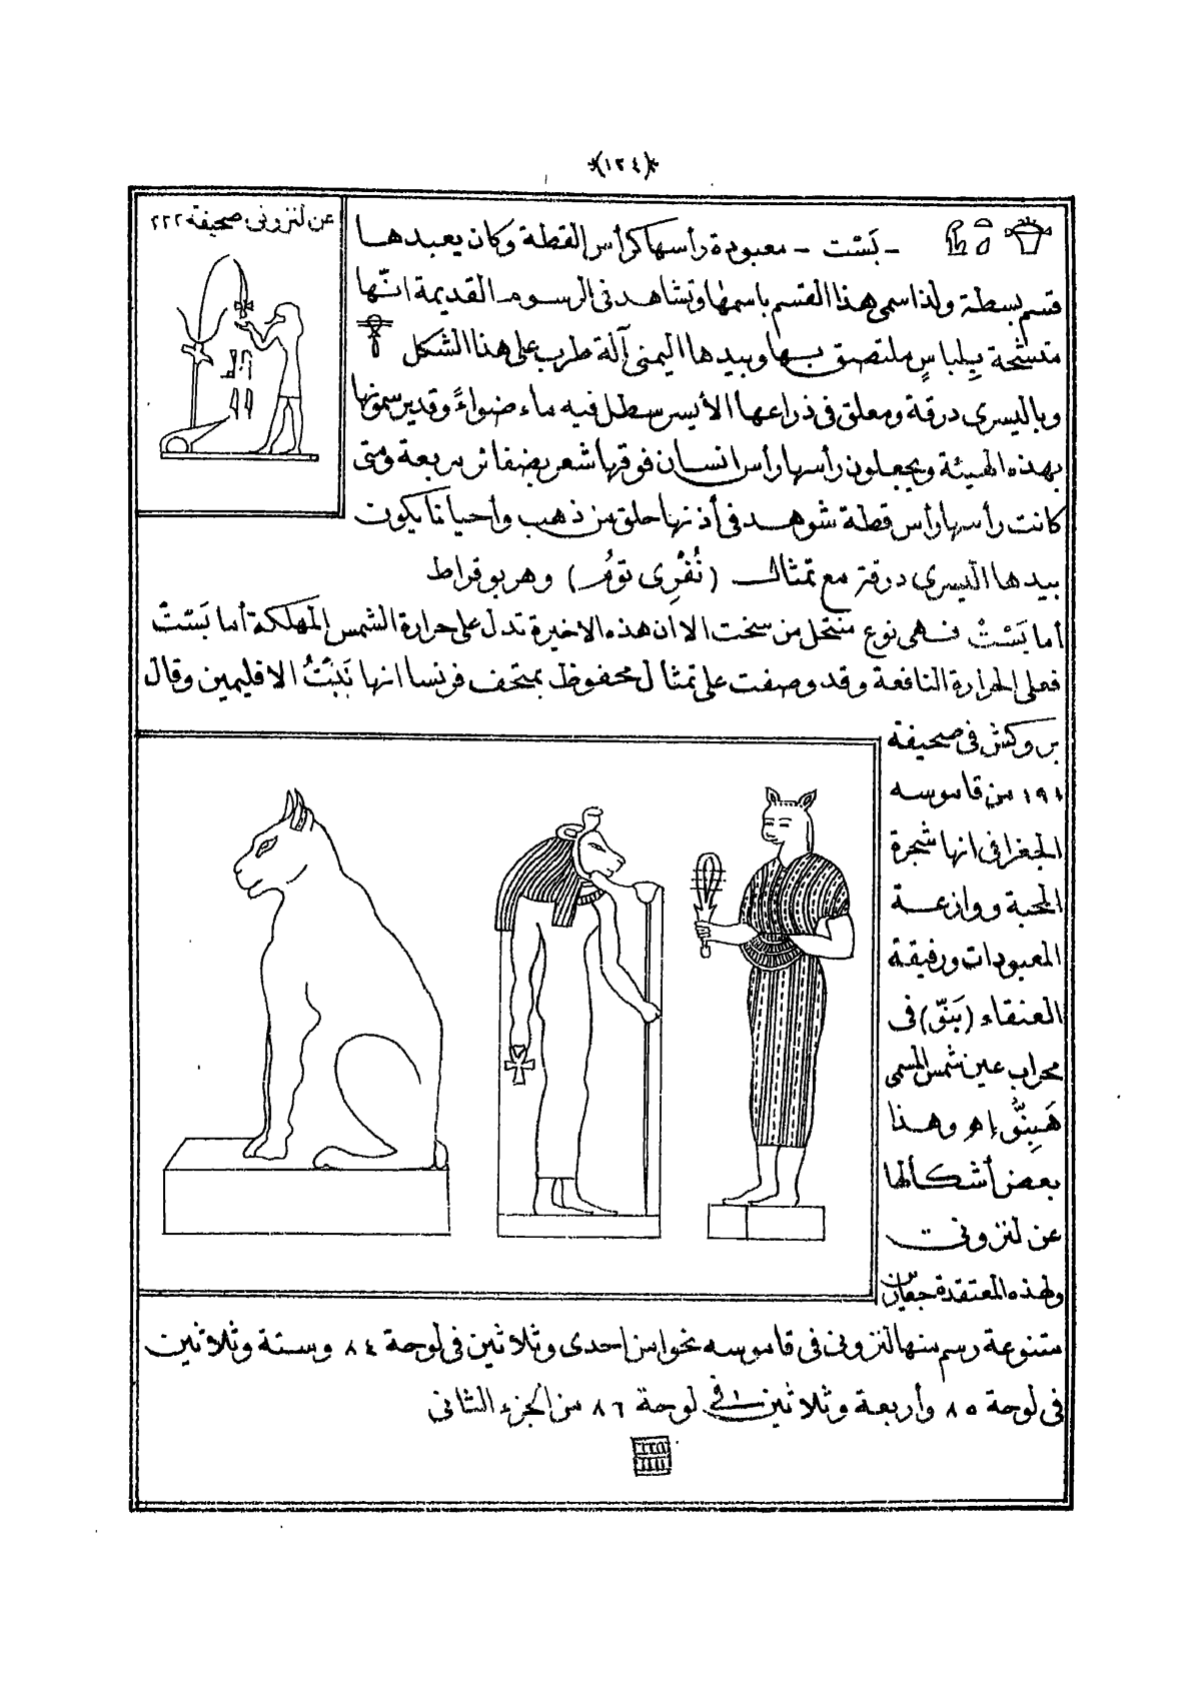 (١٢٤)
عن لنزونى صحيفة ٢٢٢
- بَسْت - معبودة رأسها كرأس القطة وكان يعبدها
قسم بسطة ولذا سمى هذا القسم باسمها وتشاهد فى الرسوم القديمة انّها
متشحة بِلباسٍ ملتصق بها وبيدها اليمنى آلة طرب على هذا الشكل
وباليسرى درقة ومعلق فى ذراعها الأيسر سطل فيه ماء ضواءً وقد يرسمونها
بهذه الهيئة ويجعلون رأسها رأس انسان فوقها شعر بضفائر مربعة ومتى
كانت رأسها رأس قطة شوهد فى أذنها حلق من ذهب وأحيانا يكون
بيدها اليسرى درقة مع تمثال (نُفْرِى تومُ) وهر بوقراط
أما بَسْتْ فهى نوع منتحل من سخت الا ان هذه الاخيرة تدل على حرارة الشمس المهلكة أما بَسْتْ
فعلى الحرارة النافعة وقد وصفت على تمثال محفوظ بمتحف فرنسا انها نَبْتُ الاقليمين وقال
بروكش فى صحيفة
١٩١ من قاموسه
الجغرافى انها شجرة
المحبة ووازعة
المعبودات ورفيقة
العنقاء (بَنّو) فى
محراب عين شمس المسمى
هَبِنُّو اهـ وهذا
بعض أشكالها
عن لنزونى
ولهذه المعتقدة جعارين
متنوعة رسم منها لنزونى فى قاموسه نحوا من احدى وثلاثين فى لوحة ٨٤ وستة وثلاثين
فى لوحة ٨٥ وأربعة وثلاثين فى لوحة ٨٦ من الجزء الثانى